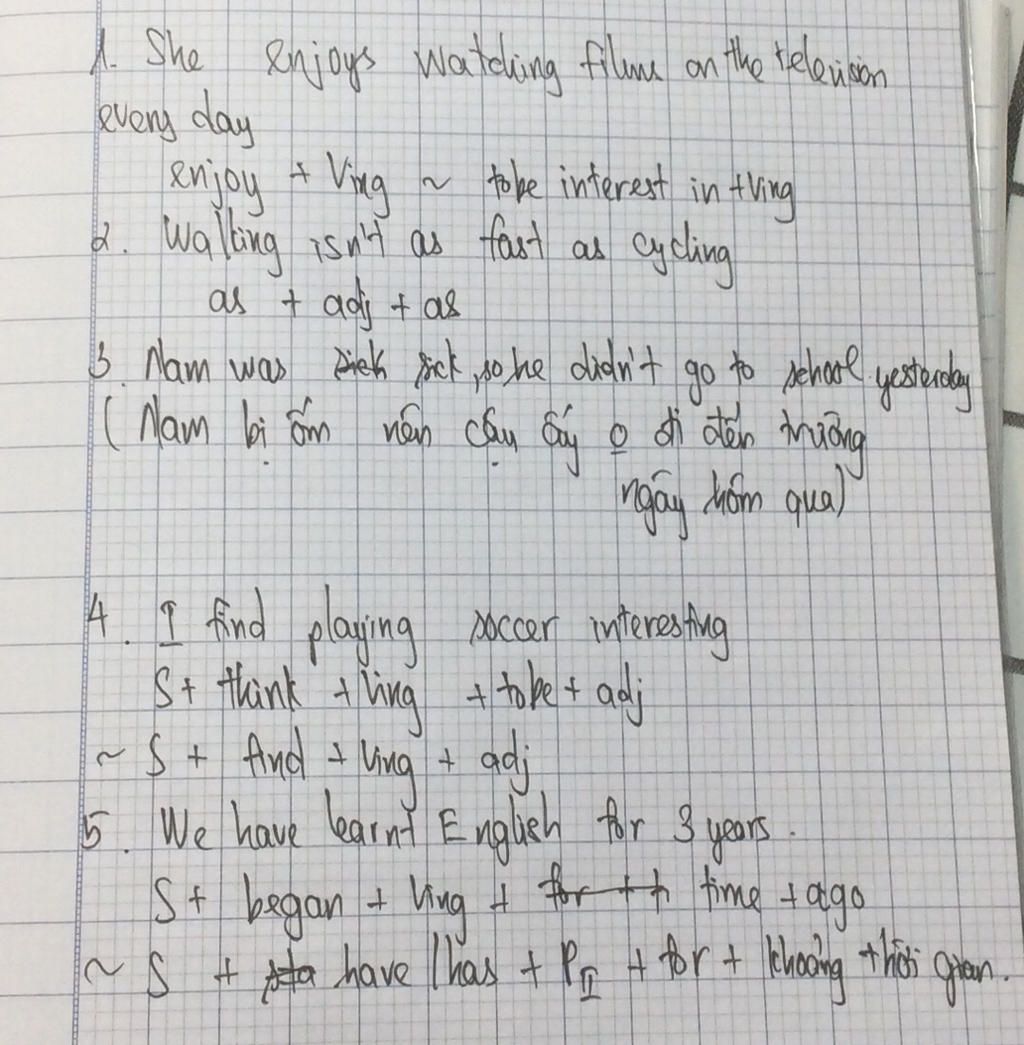 1. She enjoys watching films on the television
every day
enjoy + Ving ~ tobe interest in + Ving
2. Walking isn't as fast as cycling
as + adj + as
3. Nam was sick sick, so he didn't go to school yesterday
(Nam bị ốm nên cậu ấy o đi đến trường
ngày hôm qua)
4. I find playing soccer interesting
S + think + Ving + tobe + adj
~ S + find + Ving + adj
5. We have learnt English for 3 years.
S + began + Ving + for + time + ago
~ S + have / has + PII + for + khoảng thời gian.